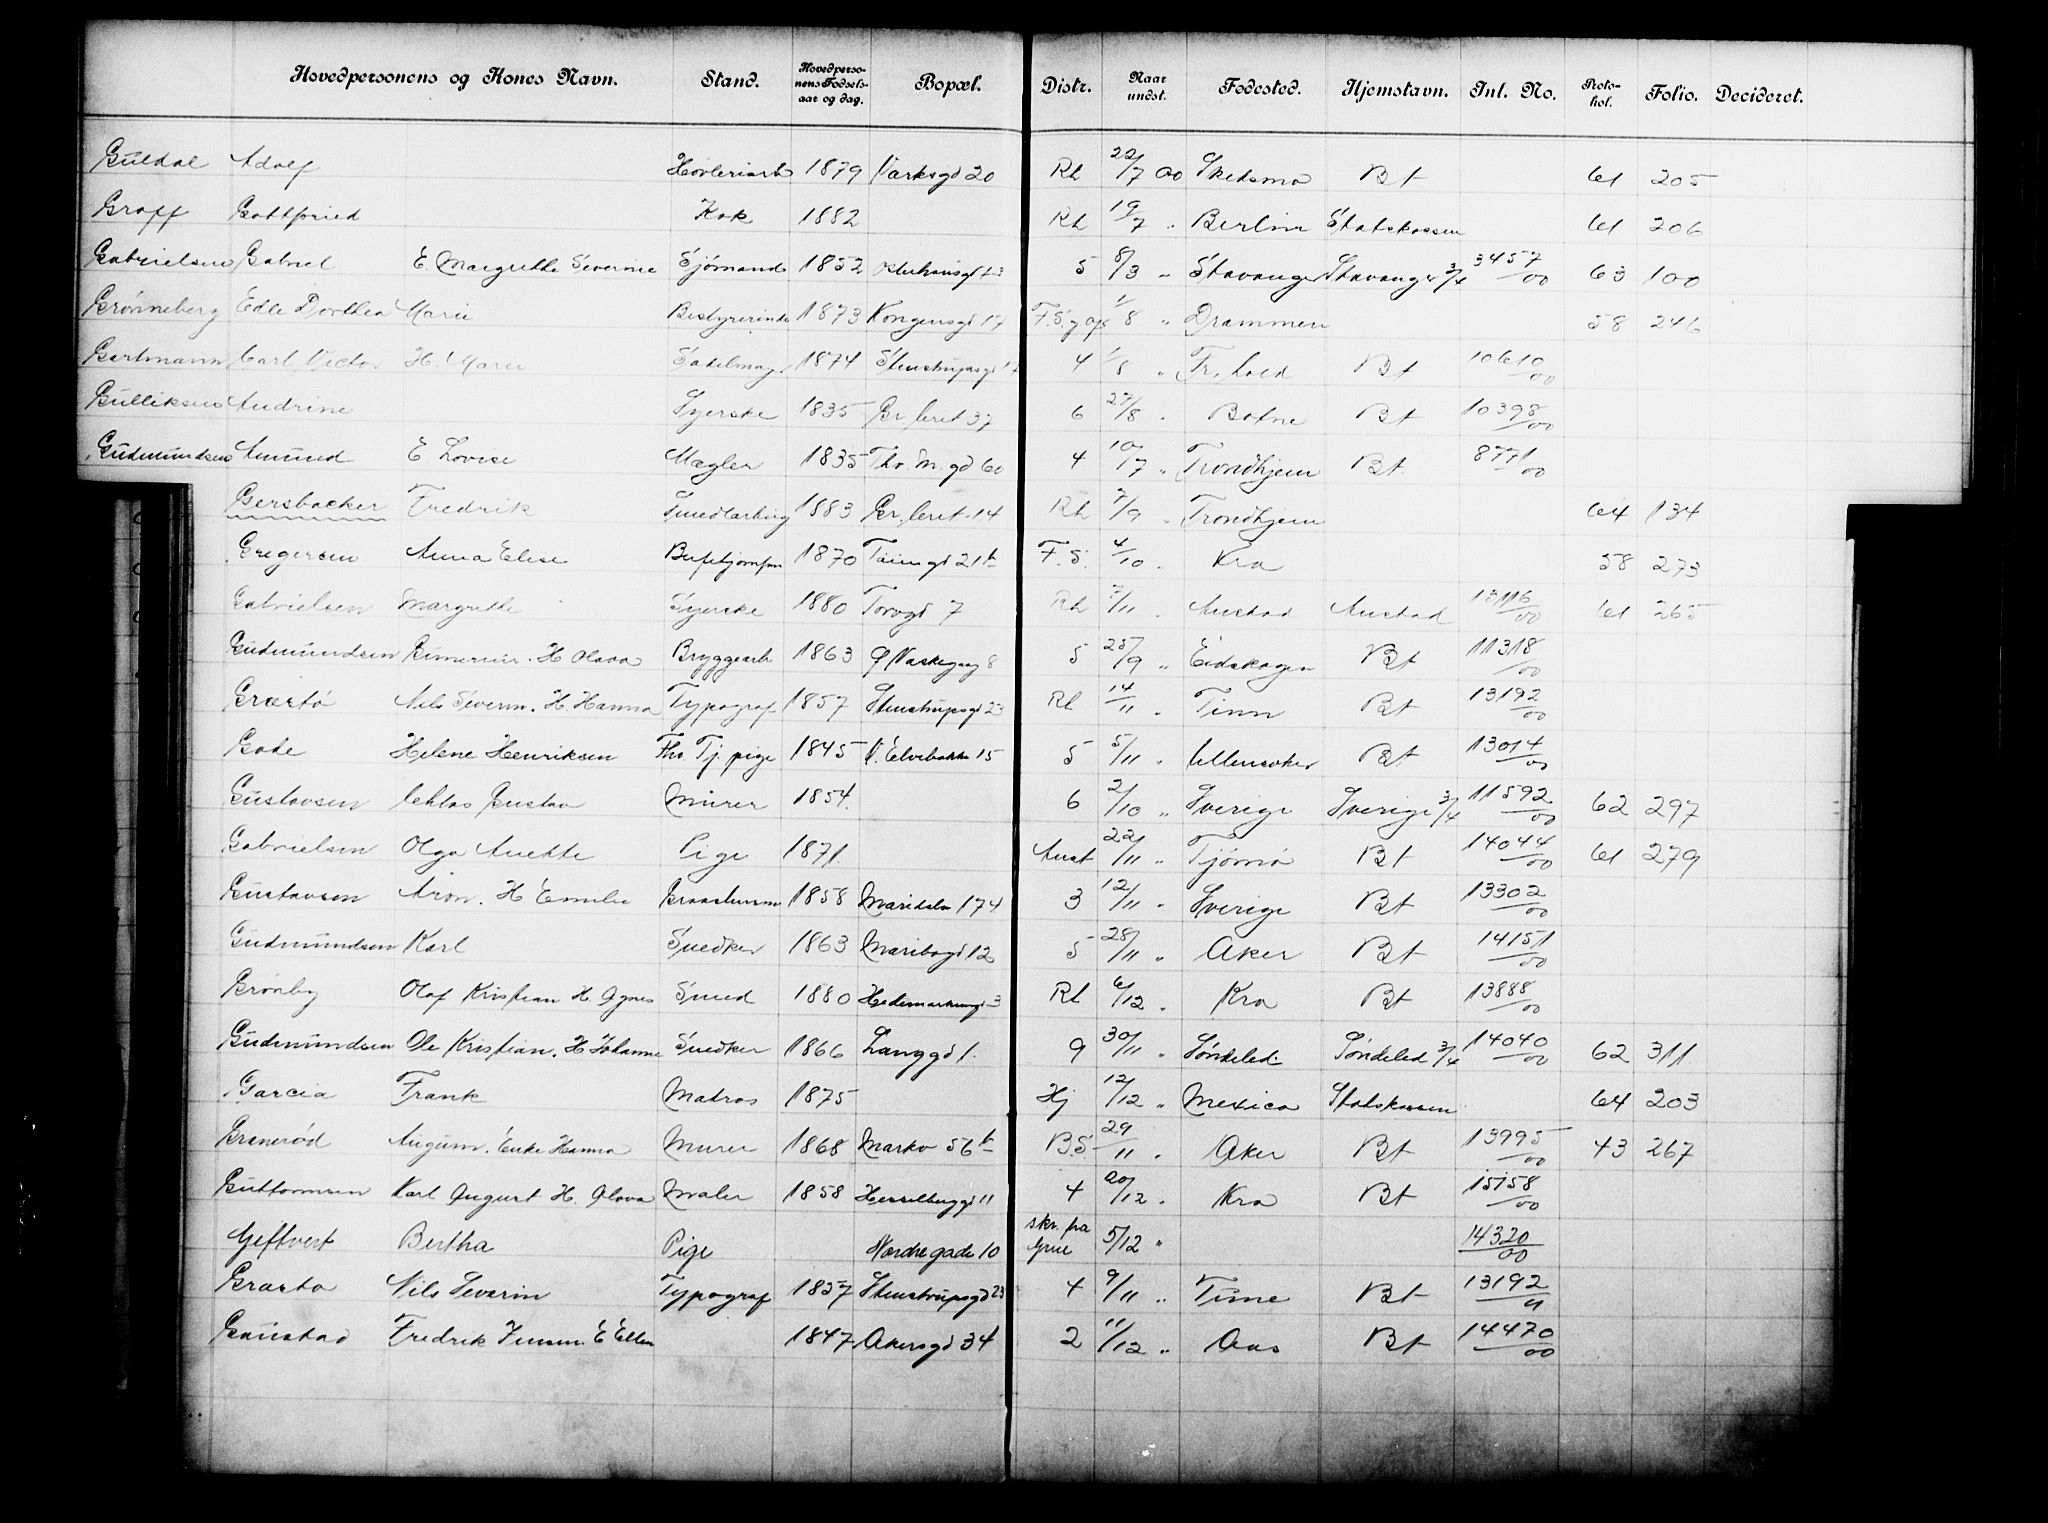 Hovedpersonens og Kones Navn. Stand. Hovedperso-nens Fødsels-aar og dag. Bopæl. Distr. Naar undst. Fødested. Hjemstavn. Inl. No. Proto-kol. Folio. Decideret.
Guldal Adolf Høvleriarb 1879 Værksgd 20 Rh 22/7 00 Skedsmo Bt 61 205
Graff Gottfried Kok 1882 Rh 19/7 " Berlin Statskassen 61 206
Gabrielsen Gabriel E Margrethe Severine Sjømand 1852 5 8/3 " Stavanger Stavanger 3/4 3457/00 63 100
Grønneberg Edle Dorthea Marie Bestyrerinde 1873 Kongensgd 17 1/8 " Drammen 58 246
Gertmann Carl Victor H. Marie Sadelmag 1874 Stenstrupsgd 4 1/8 " Fr.hald Bt 10610/00
Gulliksen Andrine Syerske 1835 Gr.leret 37 6 27/8 " Botne Bt 10398/00
Gudmundsen Amund E Lovise Mægler 1835 Thv. M. gd 60 4 10/7 " Trondhjem Bt 8771/00
Gersbacker Fredrik Smedlærling 1883 Gr.leret 14 Rh 7/9 " Trondhjem 64 134
Gregersen Anna Elise 1870 Tøiengd 21b F.S. 4/10 " Kra 58 273
Gabrielsen Margrethe Syerske 1880 Torvgd 7 Rh 7/11 " Anstad Anstad 13116/00 61 265
Gudmundsen H Olava Bryggearb 1863 Ø Vaskegang 8 5 25/9 " Eidskogen Bt 11318/00
Græsto Nils Severin. H. Hanna Typograf 1857 Stenstrupsgd 23 Rh 14/11 " Tinn Bt 13192/00
Gade Helene Henriksen Fhv Tj. pige 1845 V. Elvebakke 15 5 5/11 " Ullensaker Bt 13014/00
Gustavsen Gustav Murer 1854. 6 2/10 " Sverige Sverige 3/4 11592/00 62 297
Gabrielsen Olga Anette Pige 1871. Anst 22/11 " Tjømø Bt 14044/00 61 279
Gustavsen Aron. H Emilie 1858 Maridalsv 174 3 12/11 " Sverige Bt 13302/00
Gudmundsen Karl Snedker 1863 Maribogd 12 5 28/11 " Aker Bt 14151/00
Grønby Olaf Kristian H. Agnes Smed 1880 Hedemarkensgd 3 Rh 6/12 " Kra Bt 13888/00
Gudmundsen Ole Kristian. H. Johanne Snedker 1866 Langgd 1. 9 30/11 " Søndeled Søndeled 3/4 14040/00 62 311.
Garcia Frank Matros 1875 Hj 12/12 " Mexico Statskassen 64 203
Granerød Enke Hanna Murer 1868 Markv 56b B.S 29/11 " Aker Bt 13995/00 43 267
Guttormsen Karl August H. Olava Maler 1858 Hesselberggd 11 4 20/12 " Kra Bt 15158/00
Geftvert Bertha Pige Nordregade 10 skr. fra Grue 5/12 " 14320/00
Græsto Nils Severin Typograf 1857 Stenstrupsgd 23 4 9/11 " Time Bt 13192/"
Gaustad Fredrik Jensen. E Ellen 1847 Akersgd 34 2 11/12 " Aas Bt 14470/00